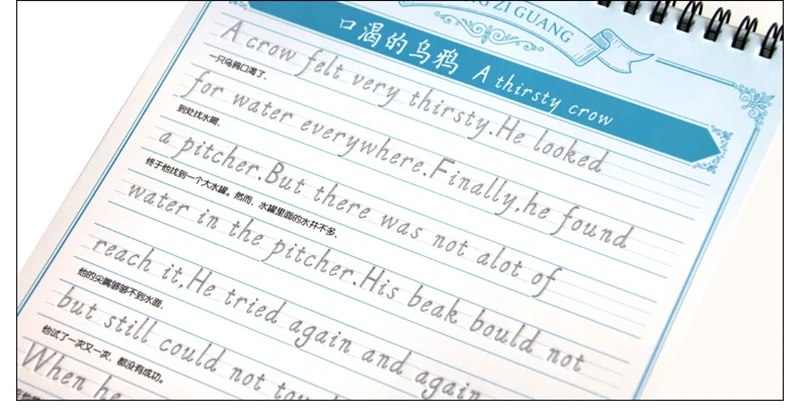 ZI GUANG
口渴的乌鸦 A thirsty crow
A crow felt very thirsty.He looked
一只乌鸦口渴了，
for water everywhere.Finally,he found
到处找水喝，
a pitcher.But there was not alot of
终于他找到一个大水罐。然而，水罐里面的水并不多，
water in the pitcher.His beak bould not
reach it.He tried again and again
他的尖嘴够够不到水面，
but still could not
他试了一次又一次，都没有成功。
When he